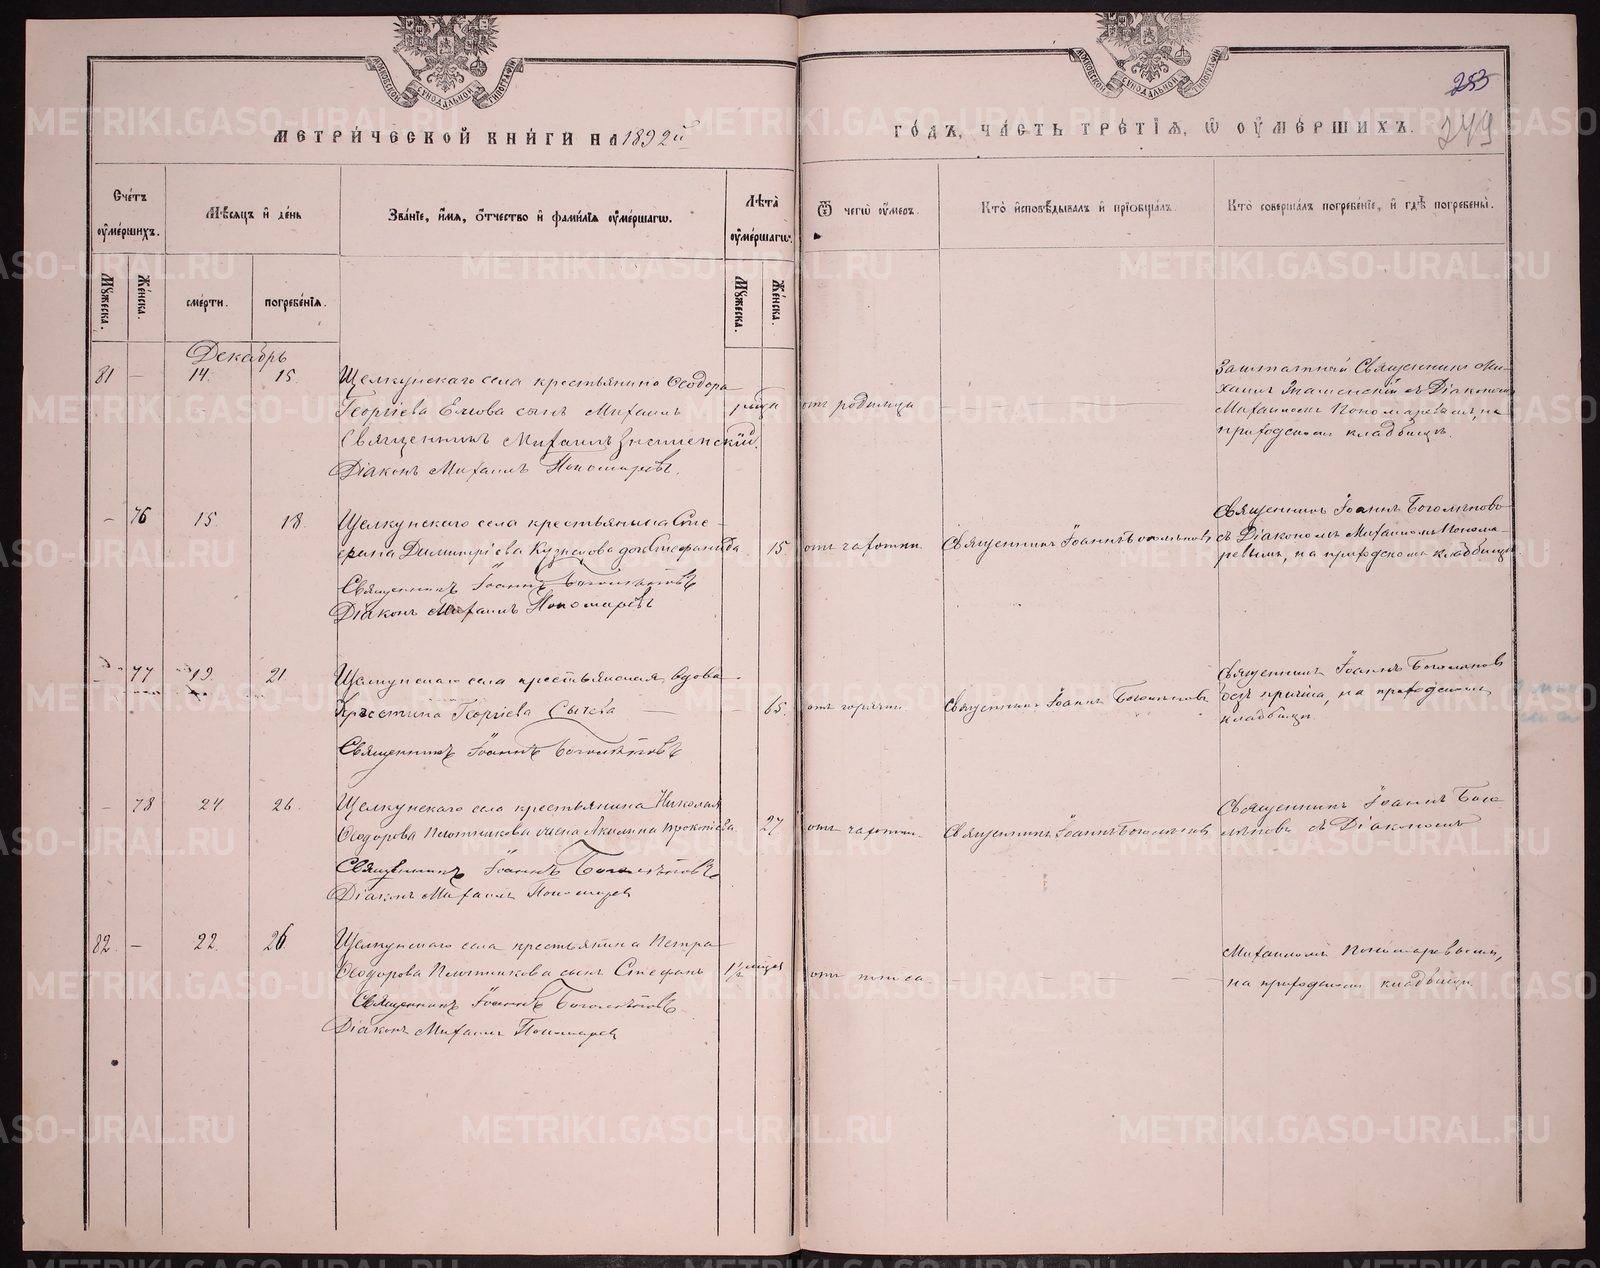 МЕТРИ́ЧЕСКОЙ КНИ́ГИ НА 1892й
ГО́ДЪ, ЧА́СТЬ ТРЕ́ТІѦ, Ѡ ОУМЕ́РШИХЪ.
253
249
Сче́тъ оумершихъ.
Мѣсяцъ и де́нь
Зва́ніе, и́мѧ, о́тчество и фами́лїѧ оуме́ршагѡ.
Лѣта̀ оумершагѡ.
Ѿ чегѡ̀ оумеръ.
Кто̀ исповѣдывалъ и прїобщалъ.
Кто̀ соверша́лъ погребе́нїе, и гдѣ̀ погребены̀.
Мужеска.
Же́нска.
сме́рти.
погребе́нїѧ.
Мужеска.
Же́нска.
Декабрь
81 — 14. 15.
Щелкунскаго села крестьянина Ѳеодора
Георгіева сынъ Михаилъ
Священникъ Михаилъ Знаменскій.
Діаконъ Михаилъ Пономаревъ.
отъ родимца
Заштатный Священникъ Ми-
хаилъ Знаменскій съ Діакономъ
Михаиломъ Пономаревымъ, на
приходскомъ кладбищѣ.
— 76 15. 18.
Щелкунскаго села крестьянина Сте-
Димитріева Кузнецова дочь Стефанида
Священникъ Іоаннъ Боголѣповъ
Діаконъ Михаилъ Пономаревъ
15.
отъ чахотки.
Священникъ Іоаннъ Боголѣповъ
Священникъ Іоаннъ Боголѣповъ
съ Діакономъ Михаиломъ Понома-
ревымъ, на приходскомъ кладбищѣ
— 77 19. 21
Щелкунскаго села крестьянская вдова
Христина Георгіева Сычева
Священникъ Іоаннъ Боголѣповъ
65.
отъ горячки.
Священникъ Іоаннъ Боголѣповъ
Священникъ Іоаннъ Боголѣповъ
безъ причта, на приходскомъ
кладбищѣ.
— 78 24 26.
Щелкунскаго села крестьянина Николая
Ѳеодорова Плотникова жена Акилина Прокопіева
Священникъ Іоаннъ Боголѣповъ
Діаконъ Михаилъ Пономаревъ
27
отъ чахотки.
Священникъ Іоаннъ Боголѣповъ
Священникъ Іоаннъ Бого-
лѣповъ съ Діакономъ
82. — 22. 26
Щелкунскаго села крестьянина Петра
Ѳеодорова Плотникова сынъ Стефанъ
Священникъ Іоаннъ Боголѣповъ
Діаконъ Михаилъ Пономаревъ
1½ мѣсяца
отъ
Михаиломъ Пономаревымъ,
на приходскомъ кладбищѣ.
METRIKI.GASO-URAL.RU